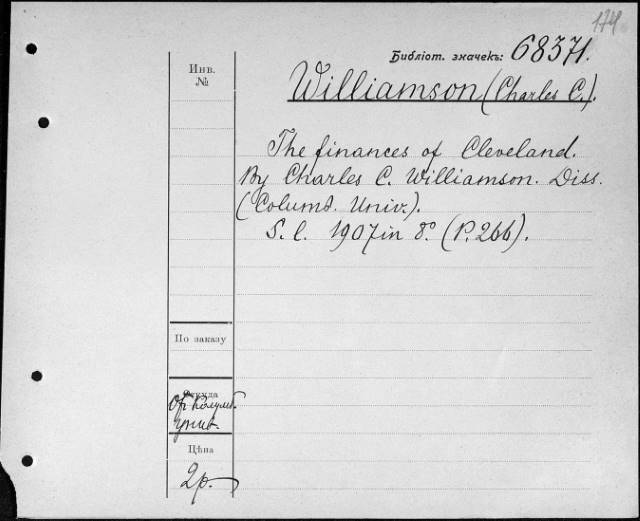 174
Библіот. значекъ: 68371.
Инв.
№
Williamson (Charles C.).
The finances of Cleveland.
By Charles C. Williamson. Diss.
(Columb. Univ.).
S. l. 1907 in 8°. (P. 266).
По заказу
Откуда
От Колумб.
унив.
Цѣна
2 р.